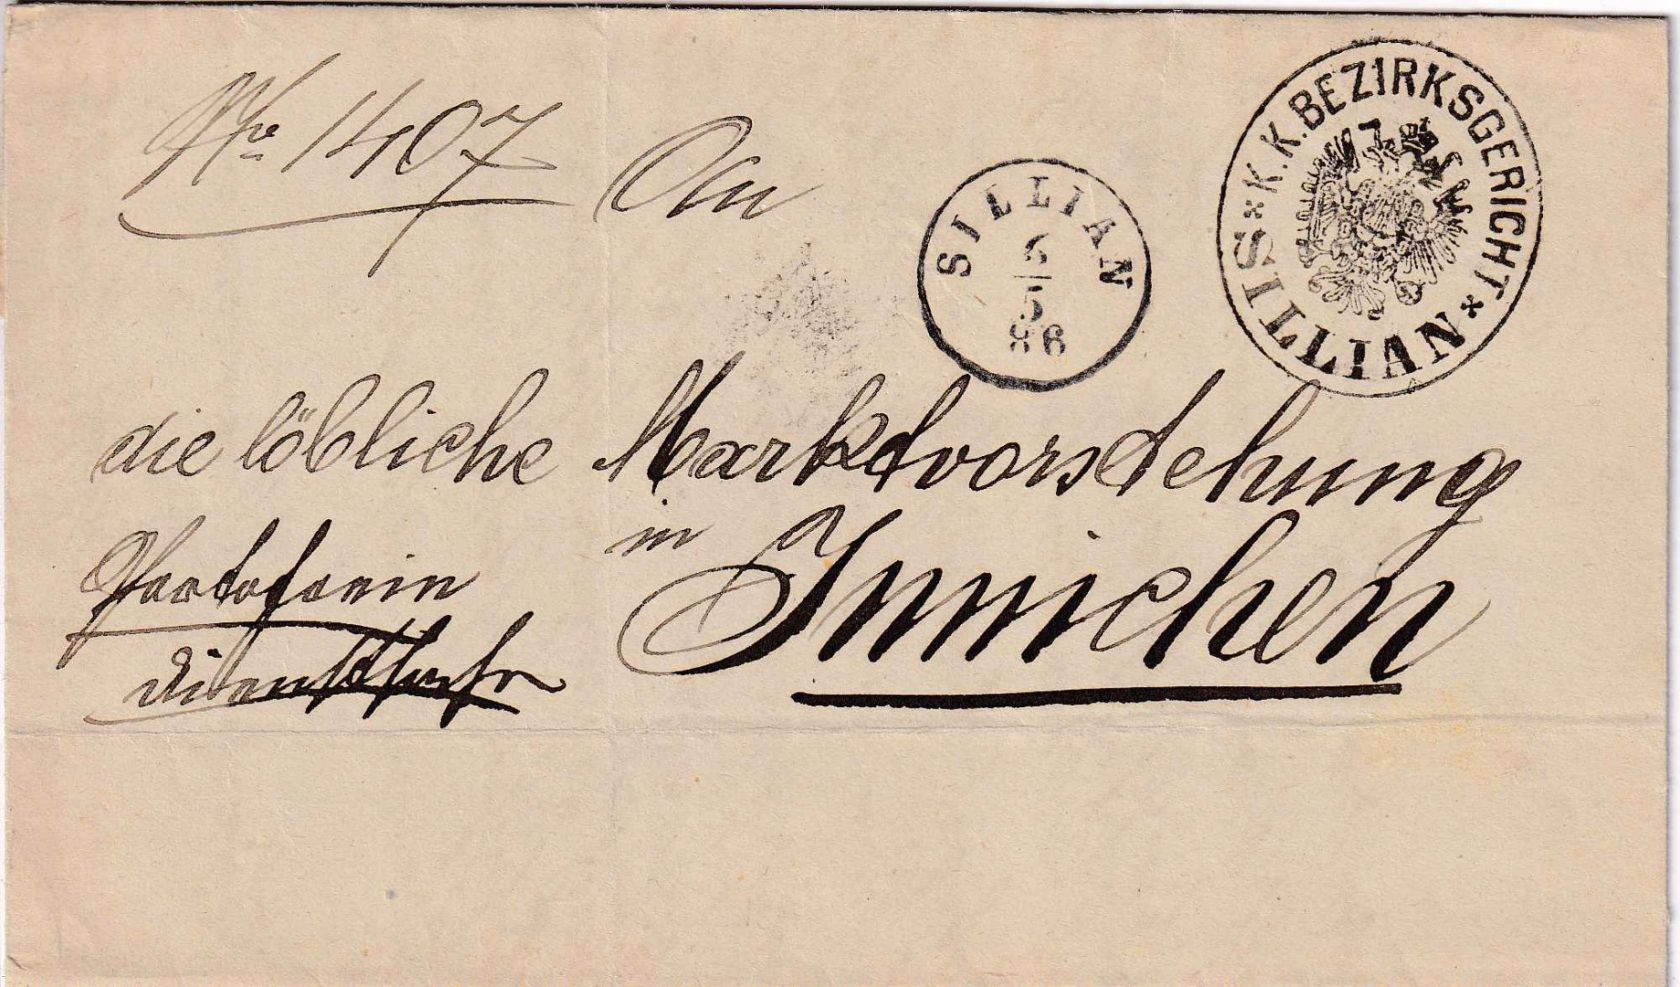 Nr. 1407
An
SILLIAN
6
5
86
* K.K. BEZIRKSGERICHT *
SILLIAN
die löbliche Marktvorstehung
in
Innichen
Portofreie